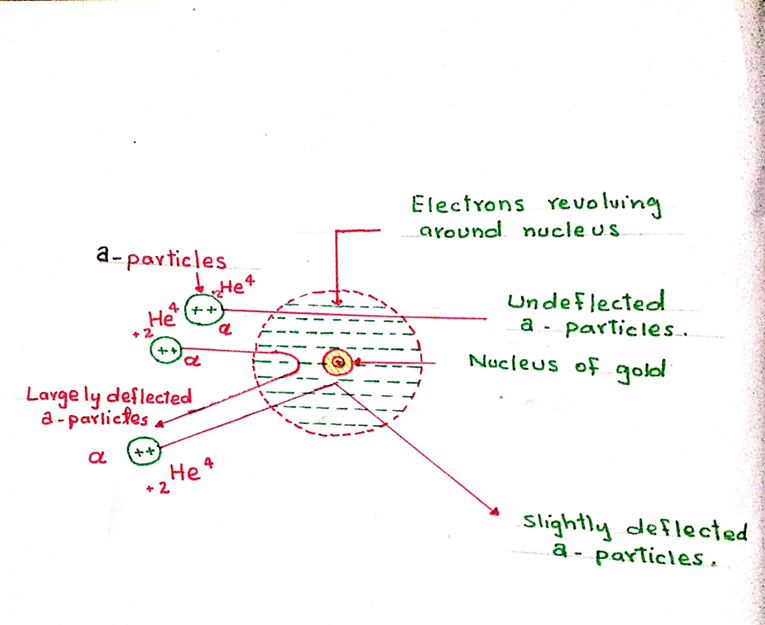 Electrons revolving
around nucleus
a-particles
+2He4
++
α
Undeflected
a - particles.
He4
+2
++
α
Nucleus of gold
Largely deflected
a-particles
α
++
He4
+2
Slightly deflected
a - particles.